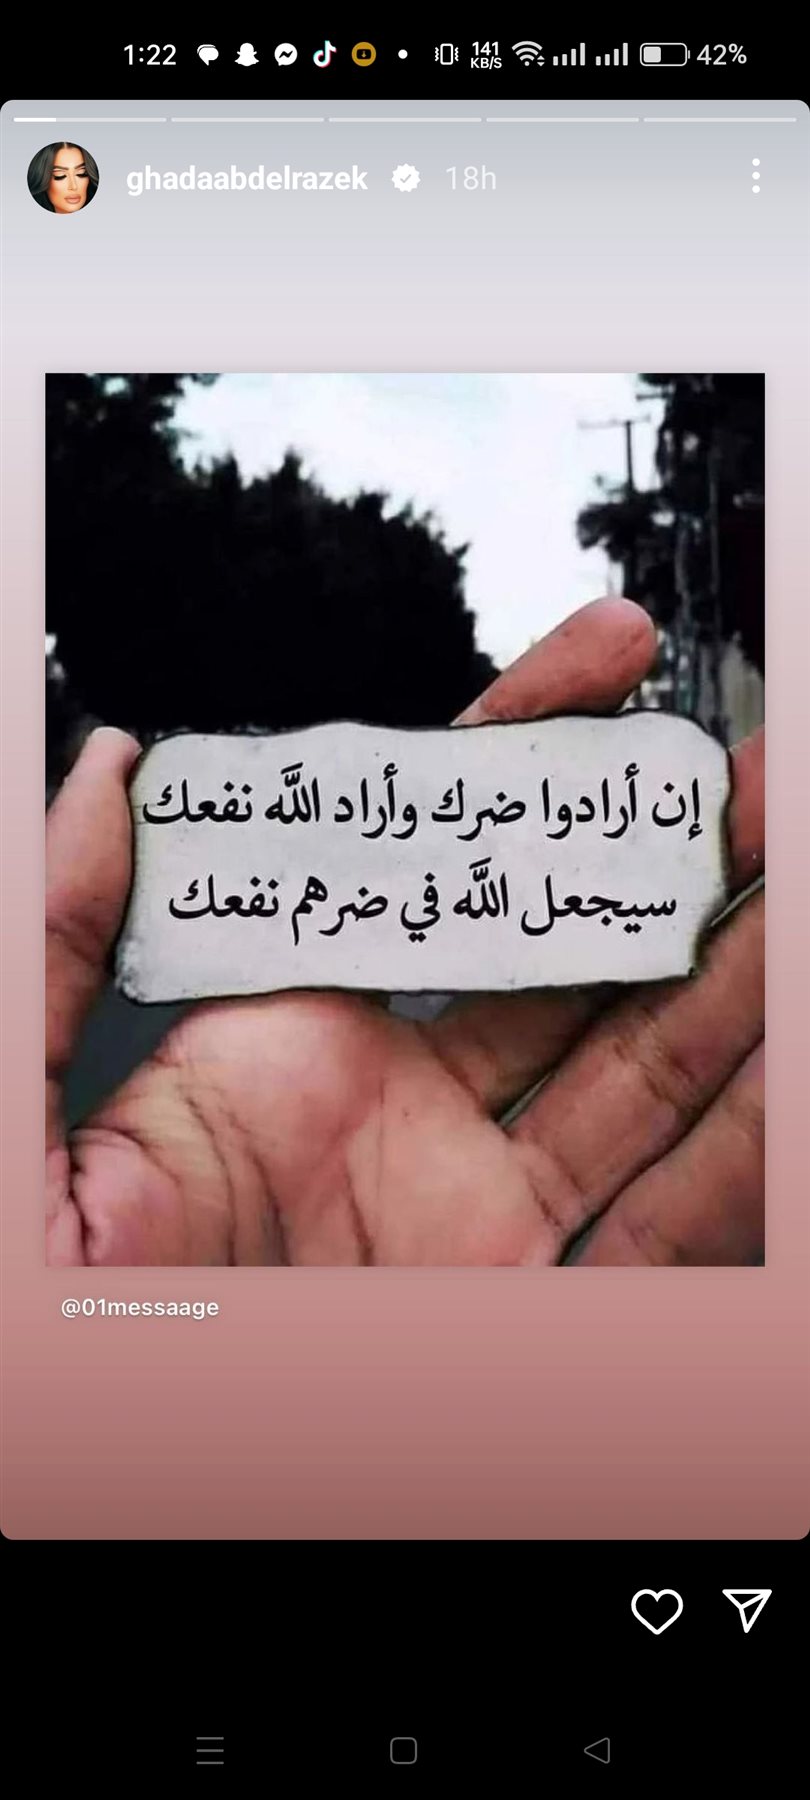 1:22 141 KB/S 42%
ghadaabdelrazek 18h
إن أرادوا ضرك وأراد الله نفعك
سيجعل الله في ضرهم نفعك
@01messaage